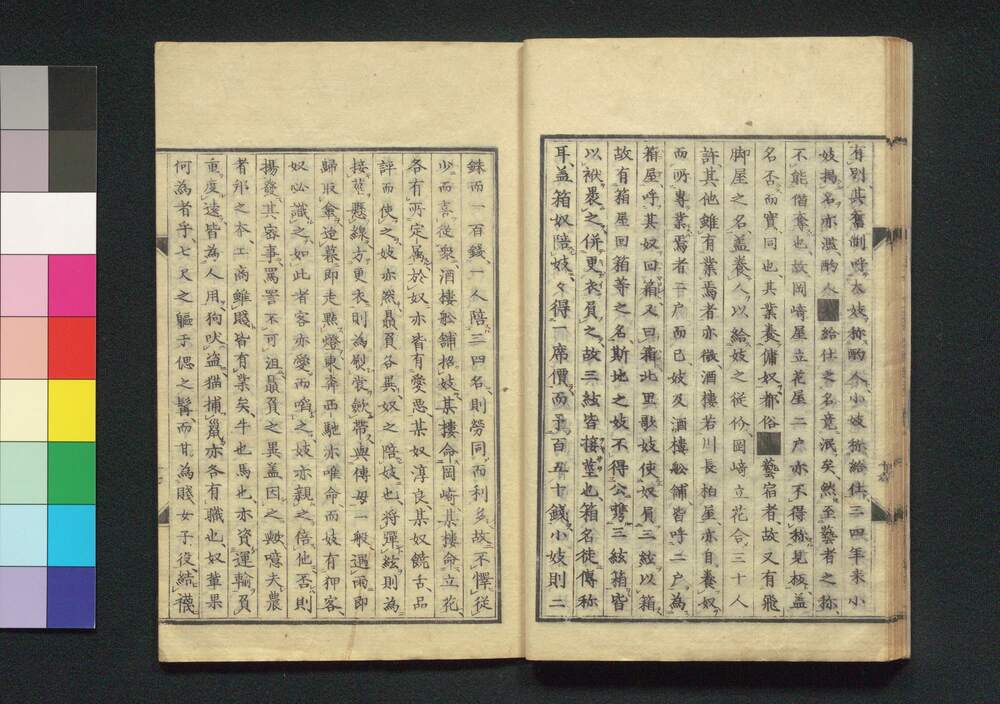 有別、其奮制呼大妓称酌人小妓称給仕三四年来小
妓揭名亦濫酌人■給仕之名竟泯矣然至藝者之称
不能僭奪也故岡﨑屋立花屋二戸亦不得称見板盖
名否而實同也其業養傭奴都俗■藝宿者故又有飛
脚屋之名盖養人以給妓之従份岡﨑立花合三十人
許其他雖有業焉者亦微酒樓若川長柏屋亦自養奴
而所専業焉者二戸而已妓及酒樓舩舗皆呼二戸為
箱屋呼其奴曰箱人曰箱此里歌妓使奴屓三絃以箱
故有箱屋回箱等之名斯地之妓不得公携三絃箱皆
以袱褁之併更衣屓之故三絃皆接莖也箱名徒傳称
耳盖箱奴陪妓々得一席價而予百五十錢小妓則二
銖而一百錢一人陪三四名則勞同而利多故不懌従
少而喜従衆酒樓舩舗招妓某樓命岡﨑某樓命立花
各有所定属於奴亦皆有愛悪某奴淳良某奴饒舌品
評而使之妓亦然贔屓各異奴之陪妓也将彈絃則為
接莖懸線方更衣則為熨裳歛帶與傳毋一般遇雨即
歸取傘迨暮即走㸃燈東奔西馳亦唯命而妓有狎客
奴必識之如此者客亦愛而啗之妓亦親之倍他否則
揚發其密事罵詈不可沮贔屓之異盖因之歟噫夫農
者邦之本工商雖賎皆有業矣牛也馬也亦資運輸負
重度遠皆為人用狗吠盗猫捕鼠亦各有職也奴輩果
何為者乎七尺之軀于偲之髯而甘為賎女子役結襪